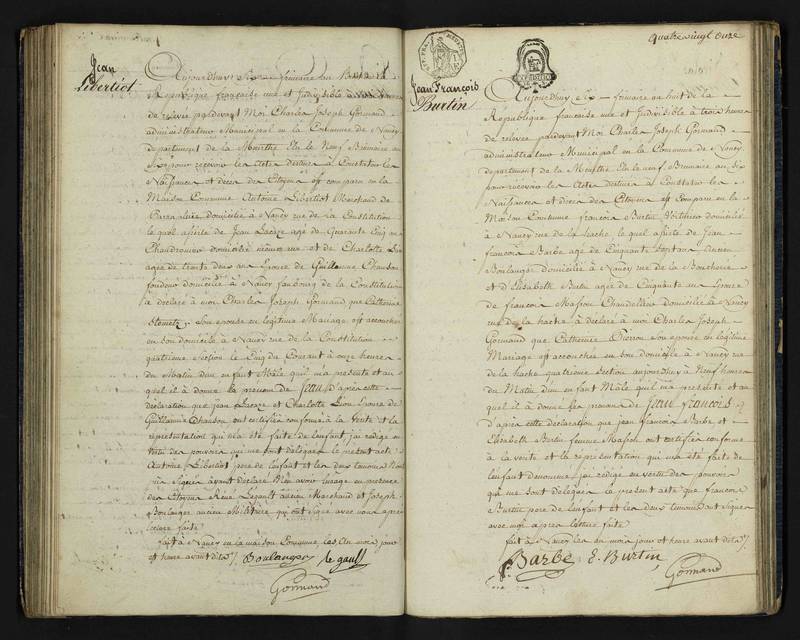 Jean
Libertiot
Aujourd'huy Six frimaire an huit de la
Republique française une et Indivisible à
de relevée pardevant Moi Charles Joseph Gormand
administrateur Municipal en la Commune de Nancy
departement de la Meurthe Elu le Neuf Brumaire an
Six pour recevoir les Actes destinés à Constater les
Naissances et décès des Citoyens est comparu en la
Maison Commune Antoine Libertiot Marchand de
domicilié à Nancy rue de la Constitution
lequel assisté de Jean Lacoze agé de Quarante Cinq ans
Chaudronier domicilié même rue et de Charlotte Lion
agée de trente deux ans Epouse de Guillaume Chauson
fondeur domicilié à Nancy faubourg de la Constitution
a déclaré à moi Charles Joseph Gormand que Catherine
Stemetz, Son epouse en legitime Mariage est accouchée
en Son domicile à Nancy rue de la Constitution
quatrieme Section le Cinq du Courant à onze heures
du Matin d'un enfant Mâle qu'il m'a présenté et au
quel il a donné le prenom de Jean, D'après cette
déclaration que Jean Lacoze et Charlotte Lion Epouse de
Guillaume Chauson ont certifiée conforme à la Verité et la
représentation qui m'a été faite de l'enfant j'ai redigé en
Vertu des pouvoirs qui me sont délégués le présent acte
Antoine Libertiot pere de l'enfant et les deux temoins
Signer ayant déclaré Bien avoir Enjage en presence
des Citoyens René Legault ancien Marchand et Joseph
Boulanger ancien Militaire qui ont signé avec nous après
lecture faite
fait à Nancy en la maison Commune les An mois jour
et heure avant dits
Boulanger le gault
Gormand
Quatre vingt Onze
Jean François
Burtin
Aujourd'huy Six frimaire an huit de la
République française une et Indivisible à trois heures
de relevée pardevant Moi Charles Joseph Gormand
administrateur Municipal en la Commune de Nancy
departement de la Meurthe Elu le neuf Brumaire an Six
pour recevoir les Actes destinés à Constater les
Naissances et décès des Citoyens est Comparu en la
Maison Commune françois Burtin domicilié
à Nancy rue de la hache lequel assisté de Jean
françois Barbe agé de Cinquante Sept ans ancien
Boulanger domicilié à Nancy rue de la Boucherie
et d'Elisabeth Burtin agée de Cinquante ans Epouse
de françois Masson Chandellier domiciliée à Nancy
rue de la hache à déclaré à moi Charles Joseph
Gormand que Catherine Pierron Son epouse en légitime
Mariage est accouchée en Son domicile à Nancy rue
de la hache quatrieme Section aujourd'huy à Neuf heures
du Matin d'un enfant Mâle qu'il m'a présenté et au
quel il a donné les prenoms de Jean François,
d'après cette déclaration que jean francois Barbe et
Elisabeth Burtin femme Masson ont certifiée conforme
à la verité et la représentation qui m'a été faite de
l'enfant denommé j'ai redigé en vertu des pouvoirs
qui me Sont délégués le présent acte que francois
Burtin pere de l'enfant et les deux temoins ont Signé
avec moi après lecture faite
fait à Nancy les An mois jour et heure avant dits
Barbe E. Burtin
Gormand